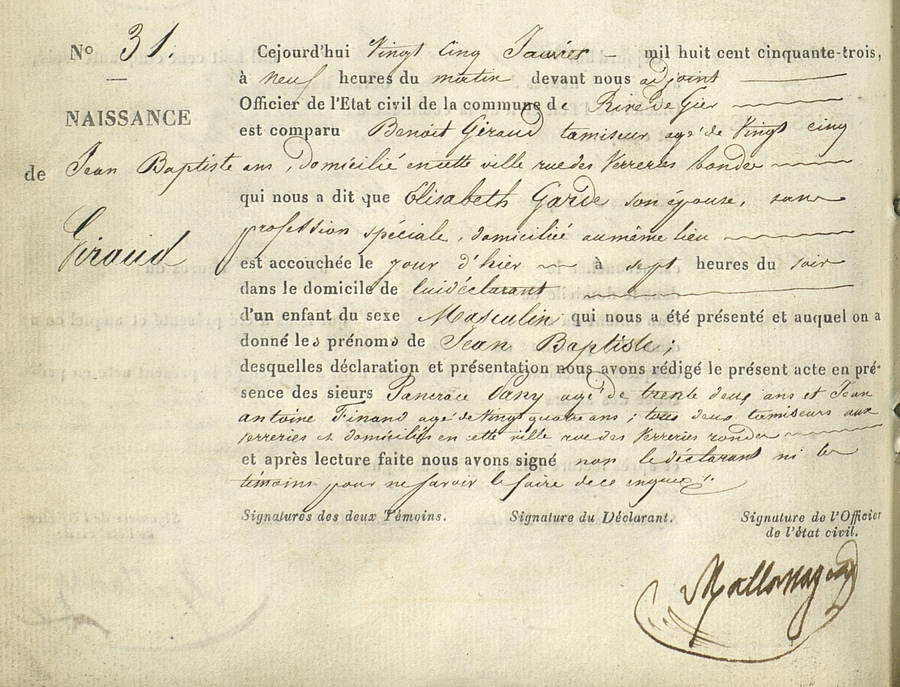 N° 31.
NAISSANCE
de Jean Baptiste
Giraud
Cejourd'hui Vingt cinq Janvier mil huit cent cinquante-trois,
à neuf heures du matin devant nous adjoint
Officier de l'Etat civil de la commune de Rive de Gier
est comparu Benoit Giraud tamiseur agé de Vingt cinq
ans, domicilié en cette ville rue des Verreries
qui nous a dit que Elisabeth Garde son épouse, sans
profession spéciale, domiciliée au même lieu
est accouchée le jour d'hier à sept heures du soir
dans le domicile de lui déclarant
d'un enfant du sexe Masculin qui nous a été présenté et auquel on a
donné les prénoms de Jean Baptiste;
desquelles déclaration et présentation nous avons rédigé le présent acte en pré-
sence des sieurs Pancrace agé de trente deux ans et Jean
antoine Finand agé de Vingt quatre ans; tous deux tamiseurs aux
verreries et domiciliés en cette ville rue des Verreries
et après lecture faite nous avons signé non le déclarant ni les
témoins pour ne savoir le faire de ce enquis.
Signatures des deux Témoins. Signature du Déclarant. Signature de l'Officier
de l'état civil.